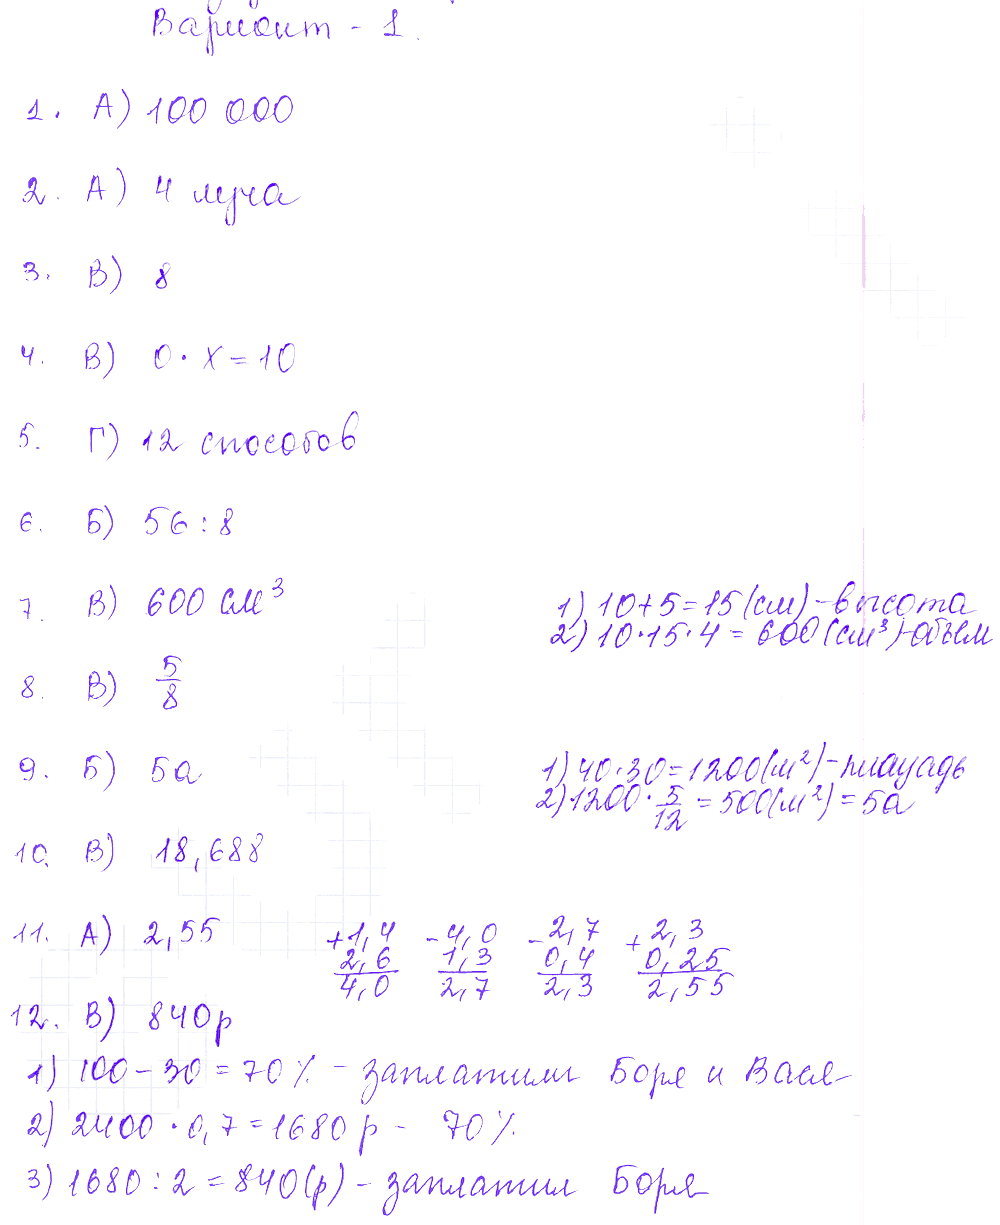 Вариант - 1.
1. А) 100 000
2. А) 4 луча
3. В) 8
4. В) 0 · х = 10
5. Г) 12 способов
6. Б) 56 : 8
7. В) 600 см³
1) 10+5=15 (см) - высота
2) 10·15·4 = 600 (см³) - объем
8. В) 5/8
9. Б) 5а
1) 40·30=1200(м²) - площадь
2) 1200 · 5/12 = 500(м²) = 5а
10. В) 18,688
11. А) 2,55
+1,4 -4,0 -2,7 +2,3
2,6 1,3 0,4 0,25
4,0 2,7 2,3 2,55
12. В) 840р
1) 100 - 30 = 70% - заплатили Боря и Вася
2) 2400 · 0,7 = 1680 р - 70%
3) 1680 : 2 = 840(р) - заплатил Боря